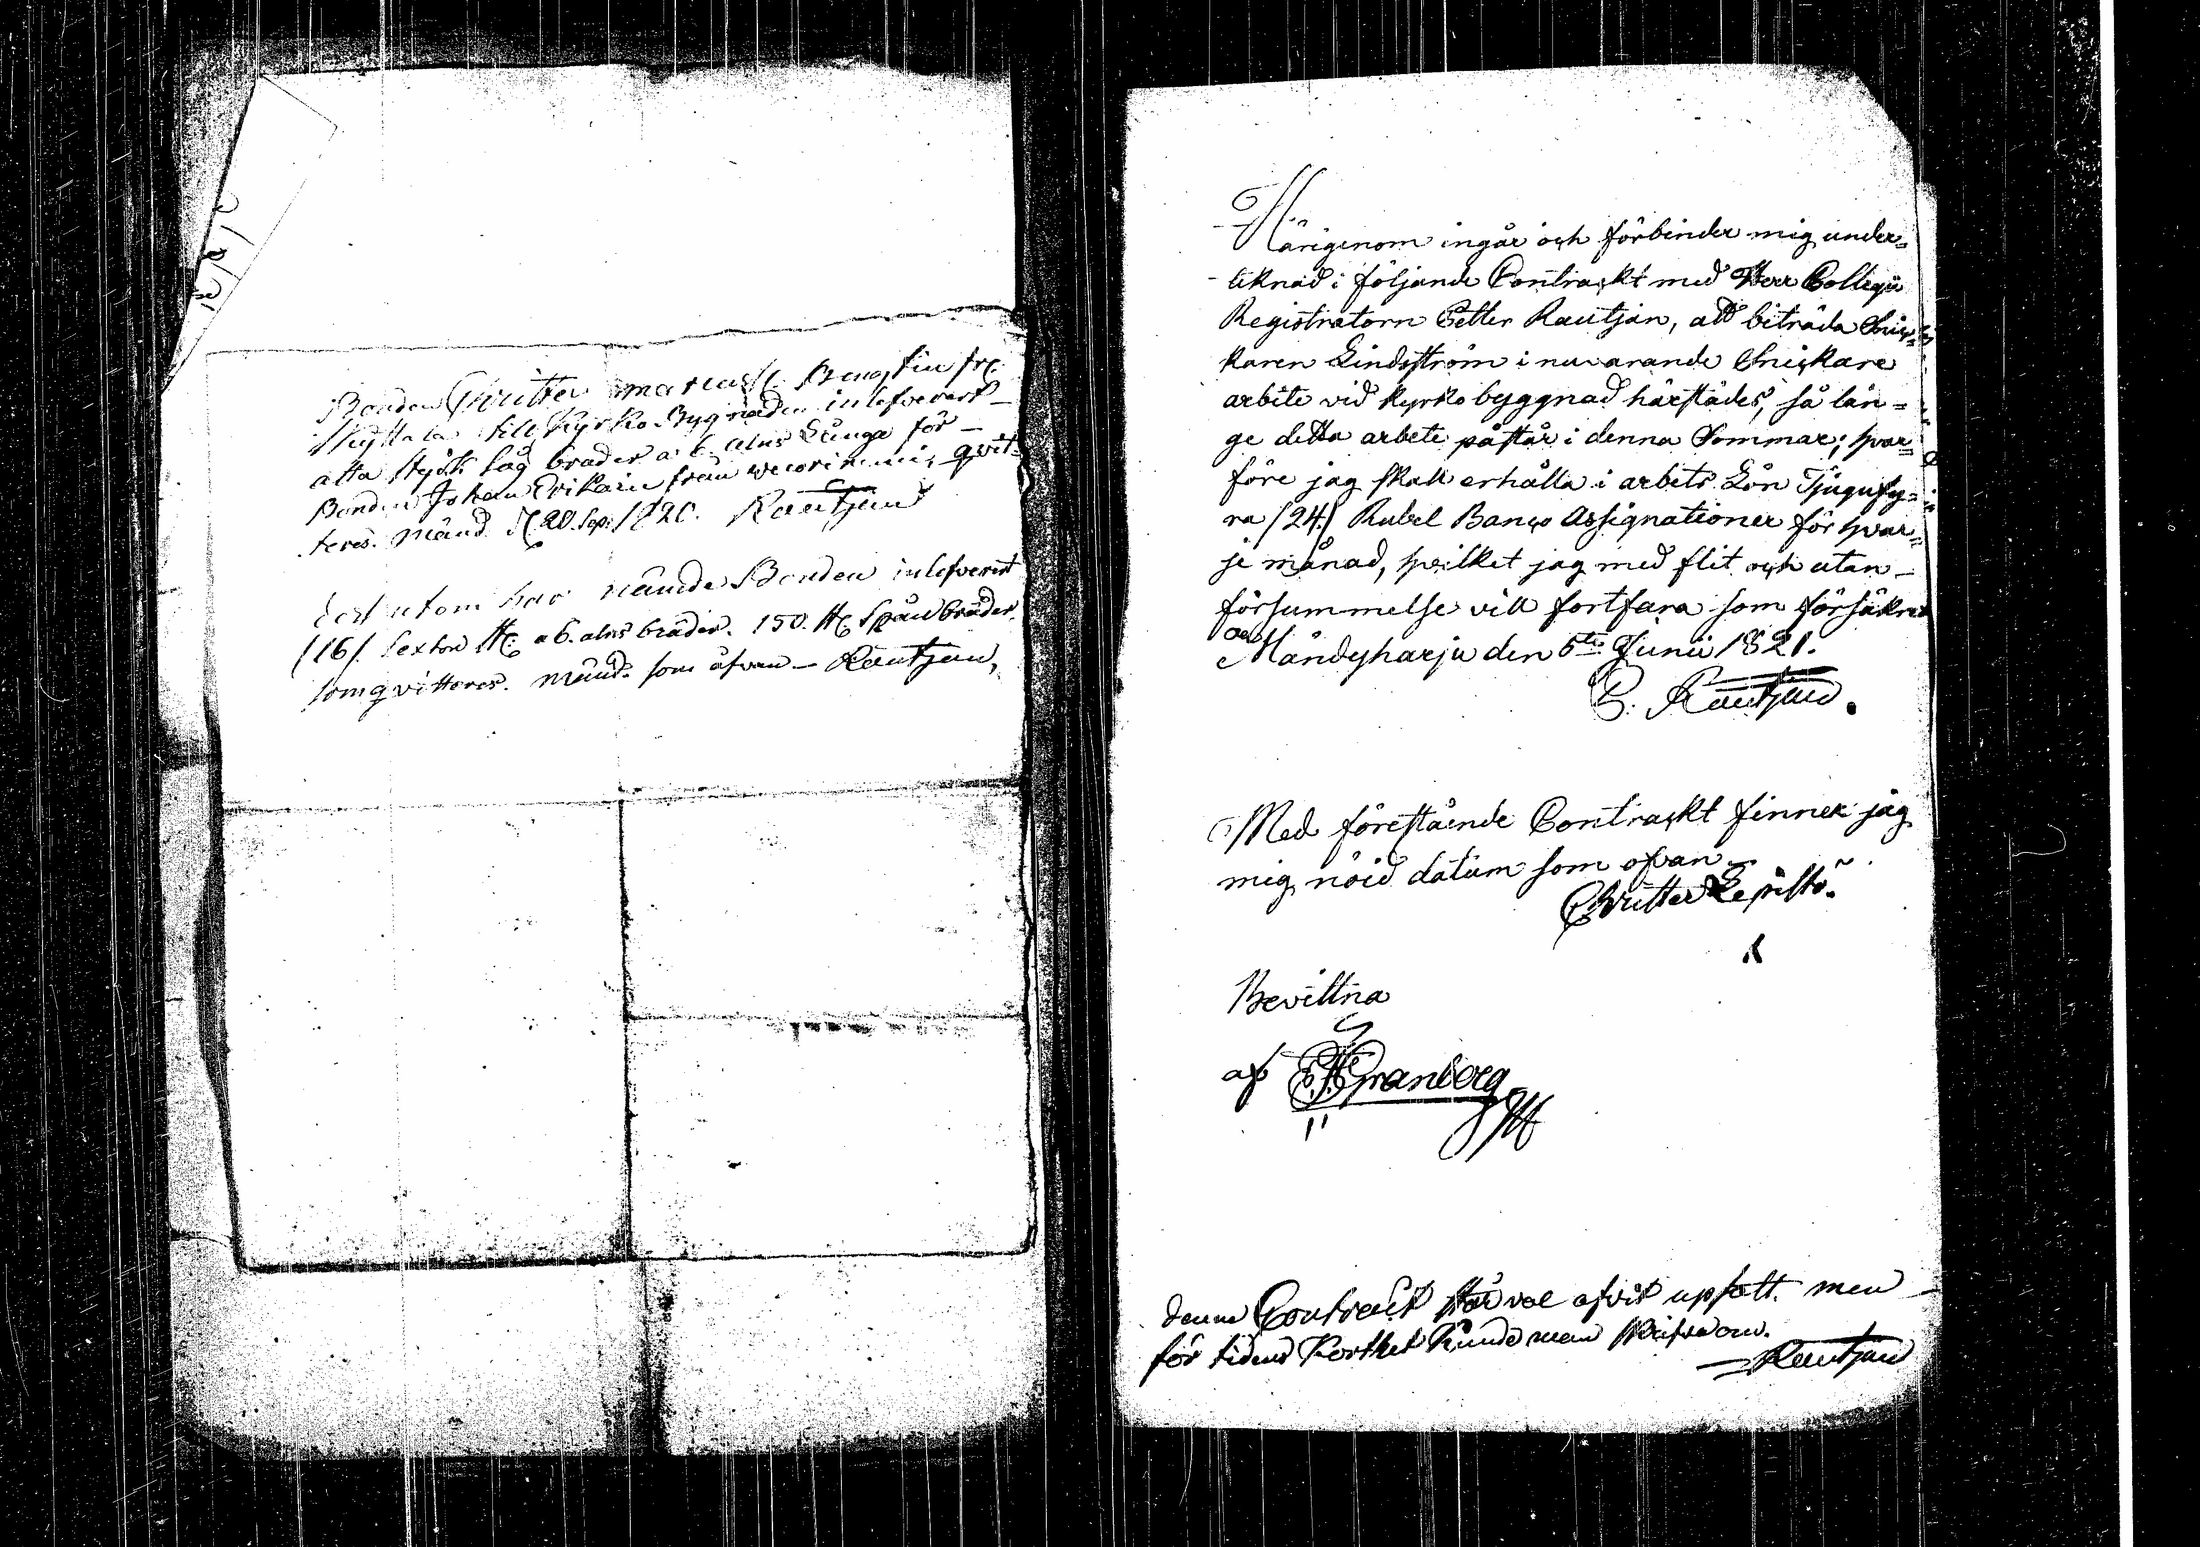 Bonden Christer marcuss: Bengtin fr:
till Kyrko Bygnaden inlefverert
åtta styck såg bräder a 6 alns Långa för
Bonden Johan Erikain från weorinmi, qvit-
teres. Mänd. d 20. Sep: 1820. Rautjan
dert utom har nämde Bonden inlefverert
/16/. Sexton st: a 6. alns bräder. 150. st: Spån bräder.
som qvitteres. mänd: som åfvan — Rautjan,
Härigenom ingår och förbinder mig under-
teknad i följande Contrackt med Herr Collegii
Registratorn Petter Rautjan, att biträda Snic-
karen Lindström i nuvarande Snickare
arbete vid kyrko byggnad härstädes, så län-
ge detta arbete påstår i denna Sommar; hvar-
före jag skall erhålla i arbets Lön Tjugufy-
ra /24/ Rubel Banco Assignationer för hvar-
je månad, hvilket jag med flit och utan
försummelse vill fortfara som försäkras
Mändyharju den 6te Junii 1821.
P. Rautjan.
Med förestående Contrackt finner jag
mig nöid datum som ofvan
Christer Lepistö.
Bevittna
af Granberg
denna Contract står väl afvit upsatt. men
för tidens Korthet Kunde man skrifva om.
Rautjan